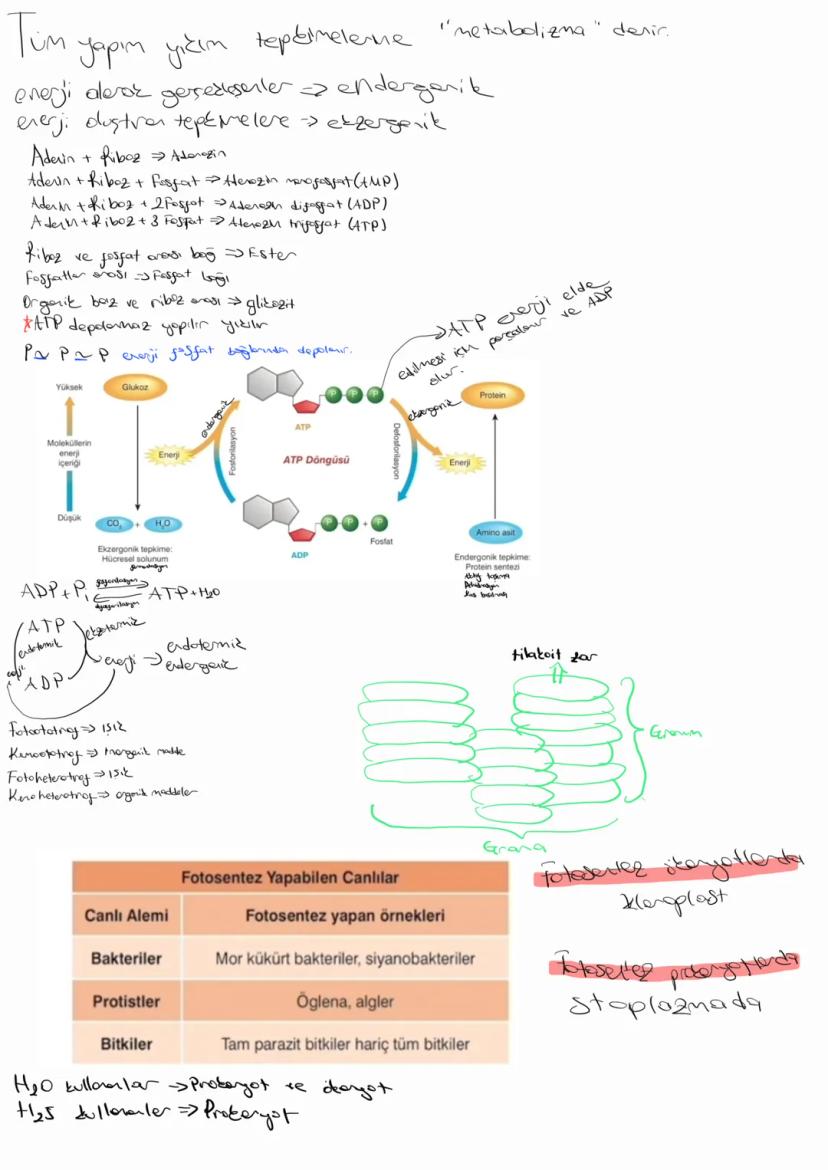 Tüm yapım yıkım tepkimelerine "metabolizma" denir.
enerji alarak gerçekleşenler => endergonik
enerji oluşturan tepkimelere -> ekzergonik
Adenin + Riboz => Adenozin
Adenin + Riboz + Fosfat => Adenozin monofosfat (AMP)
Adenin + Riboz + 2 Fosfat => Adenozin difosfat (ADP)
Adenin + Riboz + 3 Fosfat => Adenozin trifosfat (ATP)
Riboz ve fosfat arası bağ => Ester
Fosfatlar arası => Fosfat bağı
Organik baz ve riboz arası => glikozit
*ATP depolanmaz yapılır yıkılır
P ~ P ~ P enerji fosfat bağlarında depolanır.
-> ATP enerji elde
edilmesi için parçalanır ve ADP
olur.
Yüksek
Moleküllerin
enerji
içeriği
Düşük
Glukoz
Enerji
CO2 + H2O
Ekzergonik tepkime:
Hücresel solunum
fermantasyon
endergonik
Fosforilasyon
P P P
ATP
ATP Döngüsü
Defosforilasyon
P P + P
Fosfat
ADP
ekzergonik
Enerji
Protein
Amino asit
Endergonik tepkime:
Protein sentezi
ADP + Pi fosforilasyon ATP + H2O
defosforilasyon
ATP
endotermik
ADP
ekzotermik
enerji -> endotermik
endergonik
Fotoototrof => ışık
Kemoototrof => inorganik madde
Fotoheterotrof => ışık
Kemoheterotrof => organik maddeler
tilakoit zar
Granum
Grana
Fotosentez Yapabilen Canlılar
Canlı Alemi Fotosentez yapan örnekleri
Bakteriler Mor kükürt bakteriler, siyanobakteriler
Protistler Öglena, algler
Bitkiler Tam parazit bitkiler hariç tüm bitkiler
Fotosentez ökaryotlarda
kloroplast
Fotosentez prokaryotlarda
stoplazmada
H2O kullananlar -> Prokaryot ve ökaryot
H2S kullananlar => Prokaryot